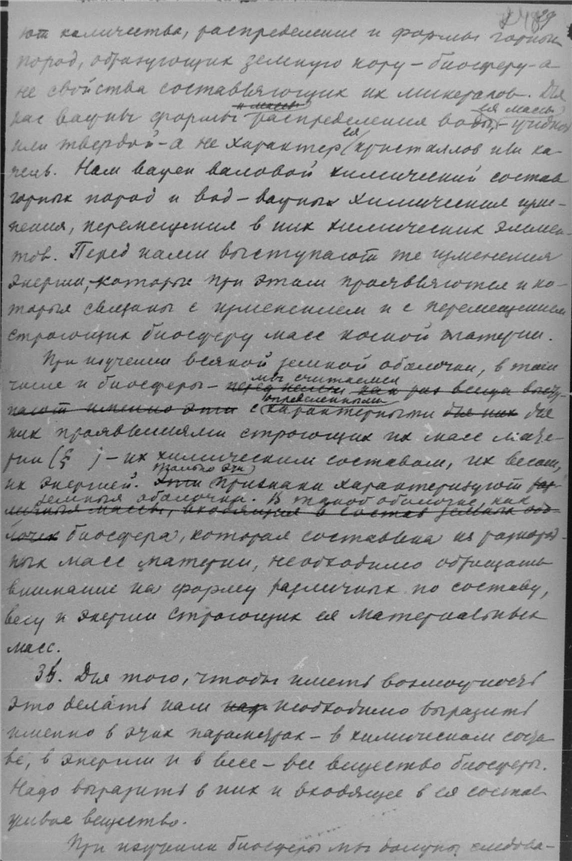 ют количества, распределение и формы горных
пород, образующих земную кору – биосферу – а
не свойства составляющих их минералов. Для
и массы ея массы
нас важны формы распределения воды, – жидкой
или твердой – а не характер ея кристаллов или ка-
пель. Нам важен валовой химический состав
горных пород и вод – важны химические изме-
нения, перемещения в них химических элемен-
тов. Перед нами выступают те изменения
энергии, которые при этом проявляются и ко-
торые связаны с изменением и с перемещением
строющих биосферу масс косной материи.
При изучении всякой земной оболочки, в том
мы считаемся
числе и биосферы – перед нами как раз всегда высту-
определенными
пают именно эти с характерными для них для
них проявлениями строющих их масс мате-
рии (§ ) – их химическим составом, их весом,
только эти
их энергией. Эти признаки характеризуют
земныя оболочки. В такой оболочке, как
массы, входящия в состав земных обо-
лочек биосфера, которая составлена из разнород-
ных масс материи, необходимо обращать
внимание на форму различных по составу,
весу и энергии строющих ея материальных
масс.
Для того, чтобы иметь возможность
это делать нам необходимо выразить
именно в этих параметрах – в химическом соста-
ве, в энергии и в весе – все вещество биосферы.
Надо выразить в них и входящее в ея состав
живое вещество.
При изучении биосферы мы должны следова-